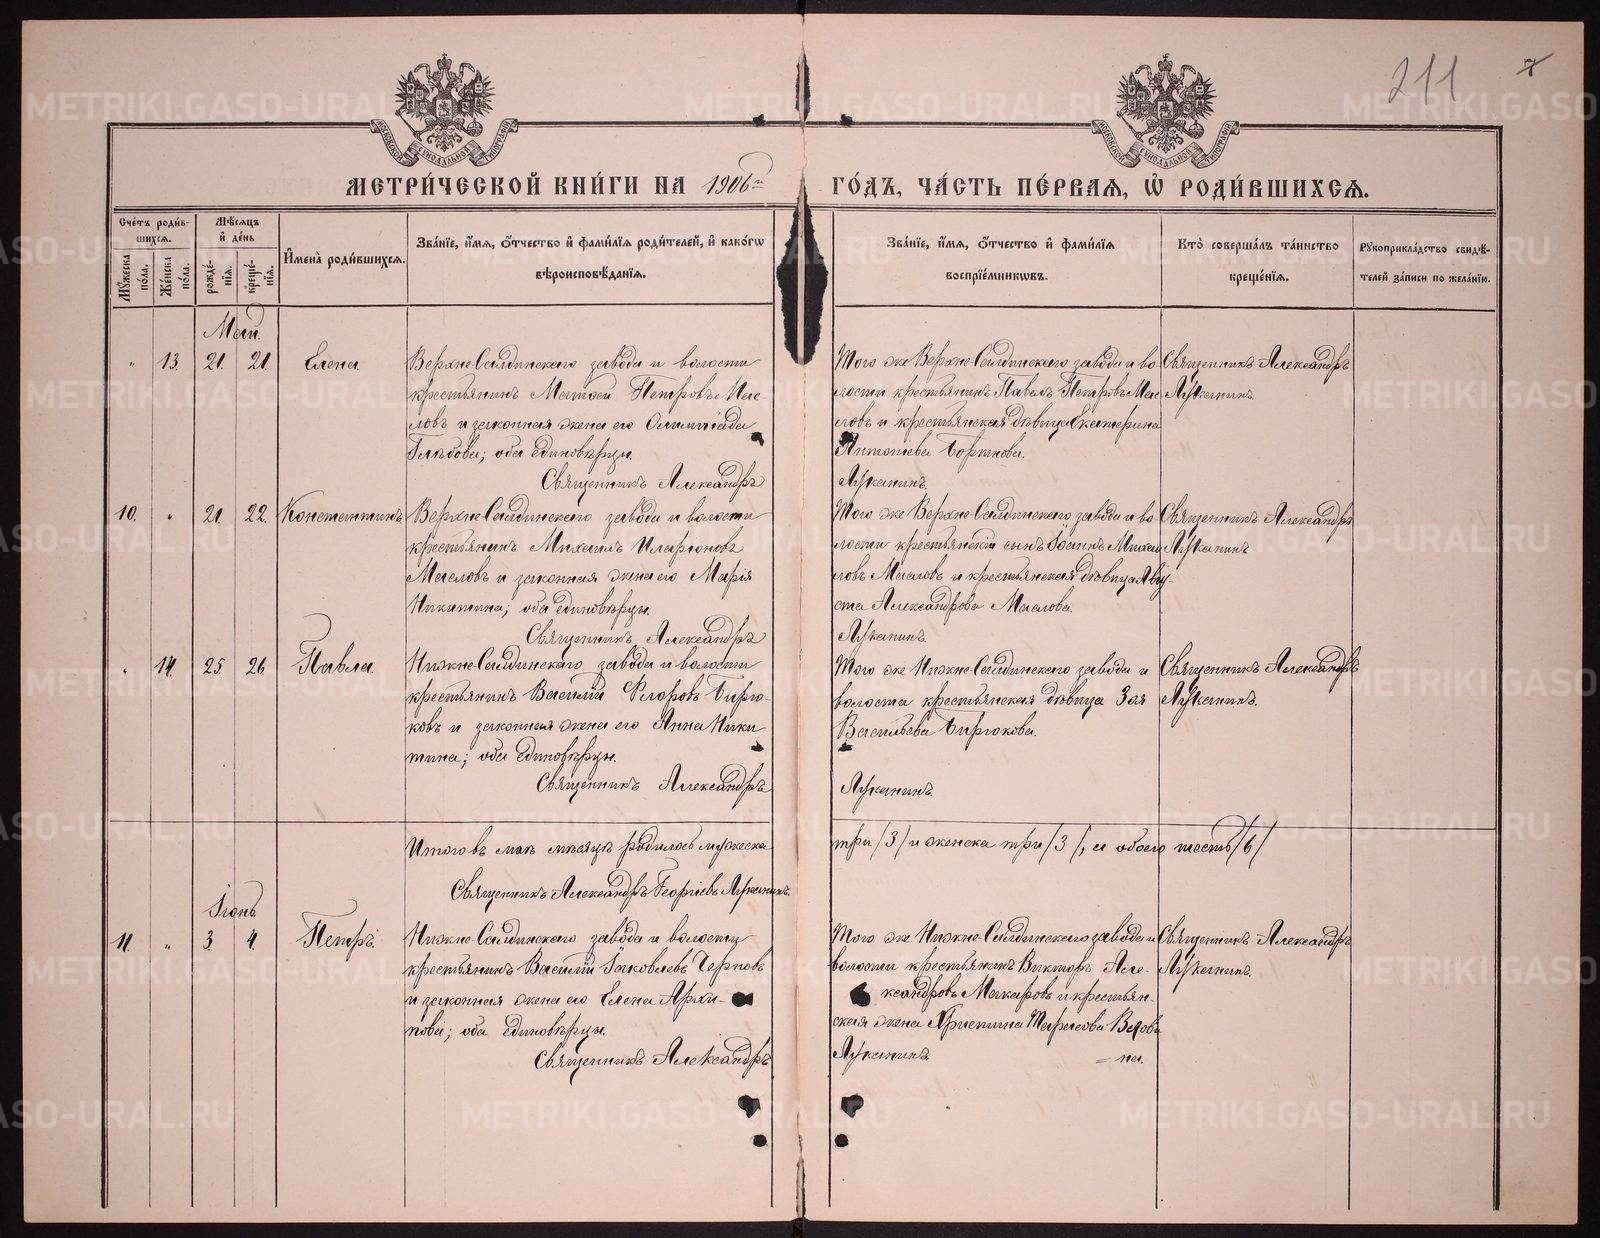 211
7
МЕТРИ́ЧЕСКОЙ КНИ́ГИ НА 1906й ГО́ДЪ, ЧА́СТЬ ПЕ́РВАЯ, Ѡ҆ РОДИ́ВШИХСЯ.
Сче́тъ роди́в-
шихся.
Мꙋжеска по́ла.
Же́нска по́ла.
Мѣсяцъ
и҆ де́нь
рожде́-
нїя.
креще́-
нїя.
И҆мена̀ роди́вшихся.
Зва́нїе, и҆́мя, ѻ҆́тчество и҆ фами́лїя роди́телей, и҆ како́гѡ
вѣроисповѣ́данїя.
Зва́нїе, и҆́мя, ѻ҆́тчество и҆ фами́лїя
воспрїе́мникѡвъ.
Кто̀ соверша́лъ та́инство
креще́нїя.
Рꙋкоприкла́дство свидѣ́-
телей за́писи по жела́нїю.
Май.
" 13. 21. 21. Елена
Верхне-Салдинскаго завода и волости
крестьянинъ Матѳей Петровъ Мас-
ловъ и законная жена его Олимпіада
Глѣбова; оба единовѣрцы.
Священникъ Александръ
Того же Верхне-Салдинскаго завода и во-
лости крестьянинъ Павелъ Петровъ Мас-
ловъ и крестьянская дѣвица Екатерина
Антоніева
Луканинъ.
Священникъ Александръ
Луканинъ.
10. " 21. 22. Константинъ
Верхне-Салдинскаго завода и волости
крестьянинъ Михаилъ Иларіоновъ
Масловъ и законная жена его Марія
Никитина; оба единовѣрцы.
Священникъ Александръ
Того же Верхне-Салдинскаго завода и во-
лости крестьянскій сынъ Іоаннъ Михаи-
ловъ Масловъ и крестьянская дѣвица Авгу-
ста Александрова Маслова.
Луканинъ.
Священникъ Александръ
Луканинъ
" 14. 25. 26. Павла.
Нижне-Салдинскаго завода и волости
крестьянинъ Василій Флоровъ Бирю-
ковъ и законная жена его Анна Ники
тина; оба единовѣрцы.
Священникъ Александръ
Того же Нижне-Салдинскаго завода и
волости крестьянская дѣвица Зоя
Васильева Бирюкова.
Луканинъ.
Священникъ Александръ
Луканинъ.
Итого въ маѣ мѣсяцѣ родилось мужеска
три /3/ и женска три /3/, а обоего шесть /6/
Священникъ Александръ Георгіевъ Луканинъ.
Іюнь.
11. " 3. 4. Петръ.
Нижне-Салдинскаго завода и волости
крестьянинъ Василій Іаковлевъ Черновъ
и законная жена его Елена Архи-
пова; оба единовѣрцы.
Священникъ Александръ
Того же Нижне-Салдинскаго завода и
волости крестьянинъ Викторъ Але-
ксандровъ Макаровъ и крестьян-
ская жена Христина Тарасова Вдови
Луканинъ = на.
Священникъ Александръ
Луканинъ.